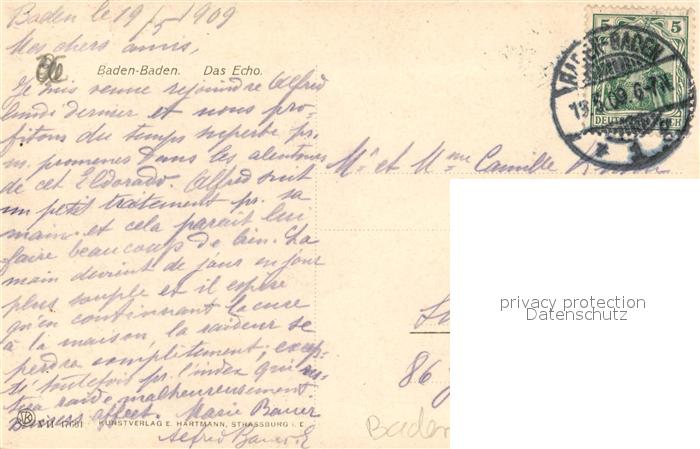 Baden le 19/5 1909
Mes chers amis,
Baden-Baden. Das Echo.
Je suis venue rejoindre Alfred
lundi dernier et nous pro-
fitons du temps superbe pr.
n. promener dans les alentours
de cet Eldorado. Alfred suit
un petit traitement pr. sa
main et cela paraît lui
faire beaucoup de bien. La
main devient de jour en jour
plus souple et il espère
qu'en continuant la cure
à la maison, la raideur se
perdra complètement; excep-
té toutefois pr. l'index qui
sera raide malheureusement.
affect. Marie Bauer
Alfred Bauer
XVII
KUNSTVERLAG E. HARTMANN, STRASSBURG i. E.
5 5
DEUTSCHES REICH
BADEN-BADEN
19.5.09. 6-7N
Mr et Mme Camille
86
Baden
privacy protection
Datenschutz